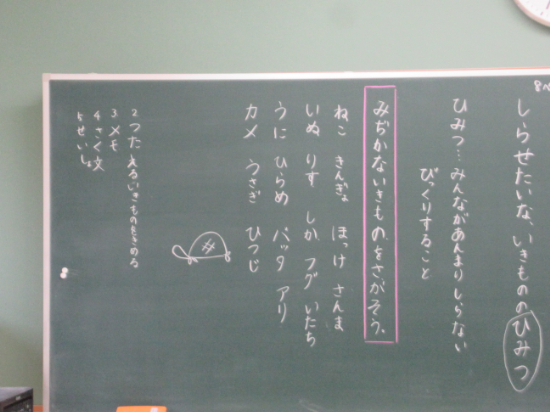 8ペ
しらせたいな、いきもののひみつ
ひみつ…みんながあんまりしらない
びっくりすること
みぢかないきものをさがそう。
ねこ きんぎょ ほっけ さんま
いぬ りす しか フグ いたち
うに ひらめ バッタ アリ
カメ うさぎ ひつじ
2つたえるいきものをきめる
3メモ
4さく文
5せいしょ